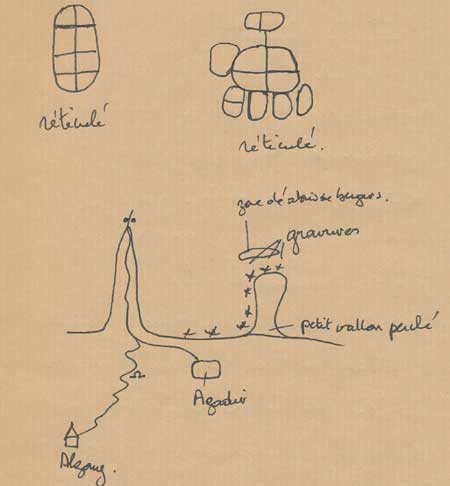 réticulé
réticulé.
zone d'abris de bergers.
gravures
petit vallon perché
Agadir